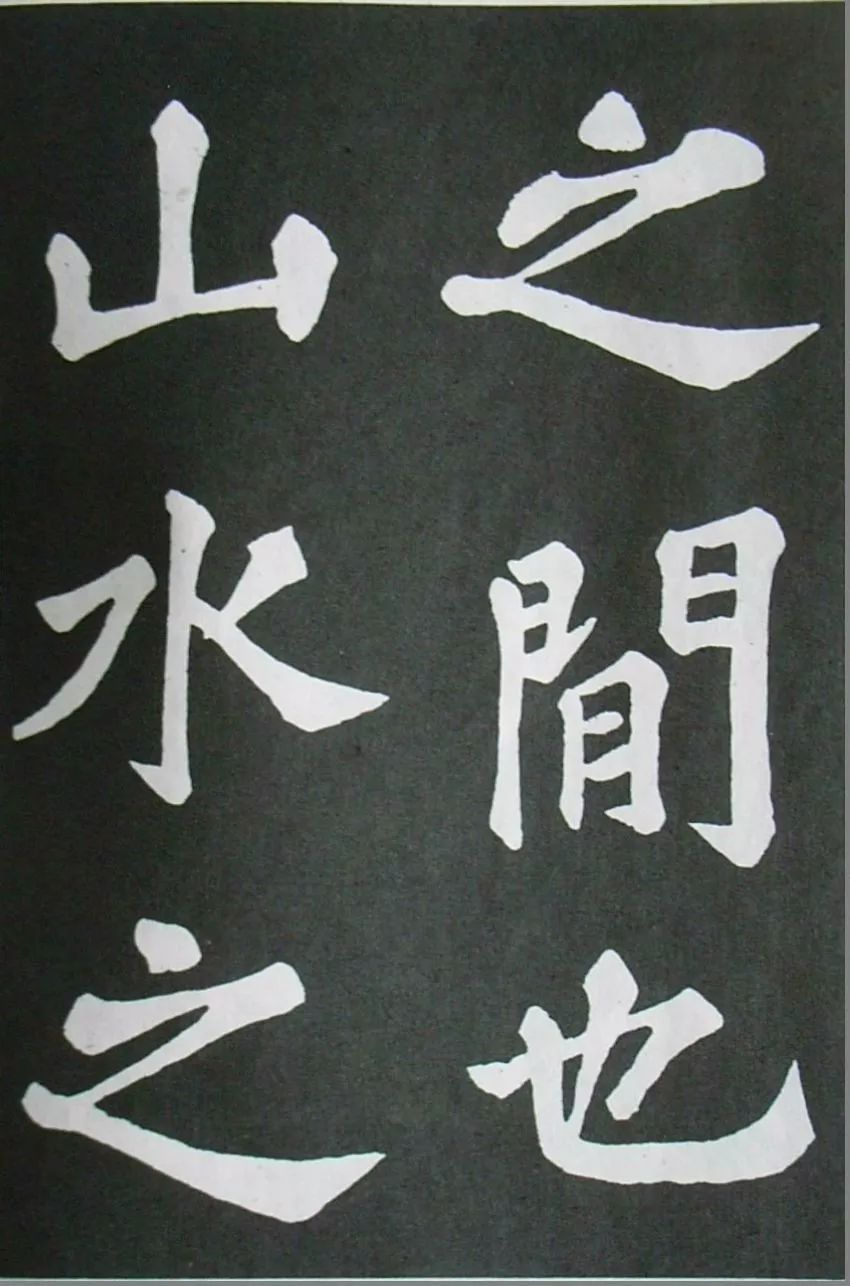 之間也
山水之